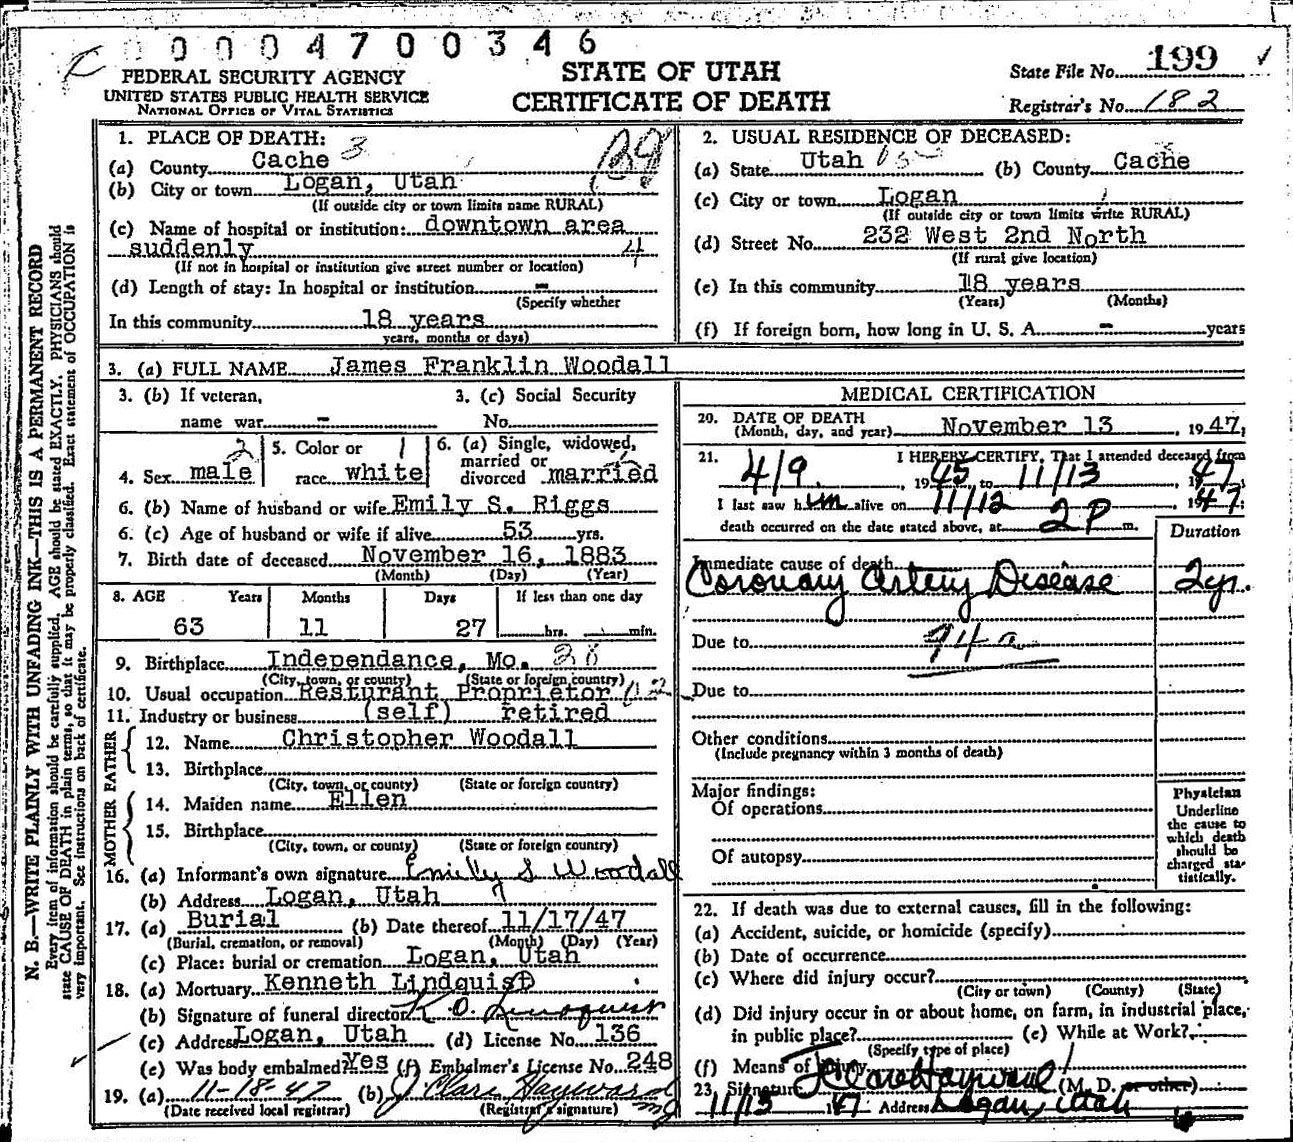 00004700346
FEDERAL SECURITY AGENCY
UNITED STATES PUBLIC HEALTH SERVICE
NATIONAL OFFICE OF VITAL STATISTICS
STATE OF UTAH
CERTIFICATE OF DEATH
State File No. 199
Registrar's No. 182
N. B.—WRITE PLAINLY WITH UNFADING INK—THIS IS A PERMANENT RECORD
Every item of information should be carefully supplied. AGE should be stated EXACTLY. PHYSICIANS should
state CAUSE OF DEATH in plain terms, so that it may be properly classified. Exact statement of OCCUPATION is
very important. See instructions on back of certificate.
1. PLACE OF DEATH:
(a) County Cache 3
(b) City or town Logan, Utah
(If outside city or town limits name RURAL)
(c) Name of hospital or institution: downtown area
suddenly 4
(If not in hospital or institution give street number or location)
(d) Length of stay: In hospital or institution -
(Specify whether
In this community 18 years
years, months or days)
2. USUAL RESIDENCE OF DECEASED:
(a) State Utah (b) County Cache
(c) City or town Logan
(If outside city or town limits write RURAL)
(d) Street No. 232 West 2nd North
(If rural give location)
(e) In this community 18 years
(Years) (Months)
(f) If foreign born, how long in U. S. A. - years
3. (a) FULL NAME James Franklin Woodall
3. (b) If veteran, 3. (c) Social Security
name war - No.
4. Sex male 2 5. Color or race white 1 6. (a) Single, widowed, married or divorced married
6. (b) Name of husband or wife Emily S. Riggs
6. (c) Age of husband or wife if alive 53 yrs.
7. Birth date of deceased November 16, 1883
(Month) (Day) (Year)
8. AGE Years Months Days If less than one day
63 11 27 hrs. min.
9. Birthplace Independance, Mo.
(City, town, or county) (State or foreign country)
10. Usual occupation Resturant Proprietor
11. Industry or business (self) retired
FATHER
12. Name Christopher Woodall
13. Birthplace
(City, town, or county) (State or foreign country)
MOTHER
14. Maiden name Ellen
15. Birthplace
(City, town, or county) (State or foreign country)
16. (a) Informant's own signature Emily S Woodall
(b) Address Logan, Utah
17. (a) Burial (b) Date thereof 11/17/47
(Burial, cremation, or removal) (Month) (Day) (Year)
(c) Place: burial or cremation Logan, Utah
18. (a) Mortuary Kenneth Lindquist
(b) Signature of funeral director K O. Lindquist
(c) Address Logan, Utah (d) License No. 136
(e) Was body embalmed? Yes (f) Embalmer's License No. 248
19. (a) 11-18-47 (b) J Clare Hayward MD
(Date received local registrar) (Registrar's signature)
MEDICAL CERTIFICATION
20. DATE OF DEATH
(Month, day, and year) November 13, 1947;
21. I HEREBY CERTIFY, That I attended deceased from
4/9, 1945 to 11/13, 1947
I last saw him alive on 11/12 1947;
death occurred on the date stated above, at 2 P m.
Duration
Immediate cause of death
Coronary Artery Disease 2yr.
Due to 94a
Due to
Other conditions
(Include pregnancy within 3 months of death)
Major findings:
Of operations
Of autopsy
Physician
Underline
the cause to
which death
should be
charged sta-
tistically.
22. If death was due to external causes, fill in the following:
(a) Accident, suicide, or homicide (specify)
(b) Date of occurrence
(c) Where did injury occur?
(City or town) (County) (State)
(d) Did injury occur in or about home, on farm, in industrial place,
in public place? (e) While at Work?
(Specify type of place)
(f) Means of injury
23. Signature J Clare Hayward (M. D. or other)
11/13 1947 Address Logan, Utah